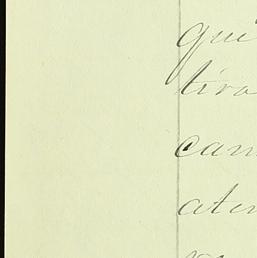 que
tira
cam
aten